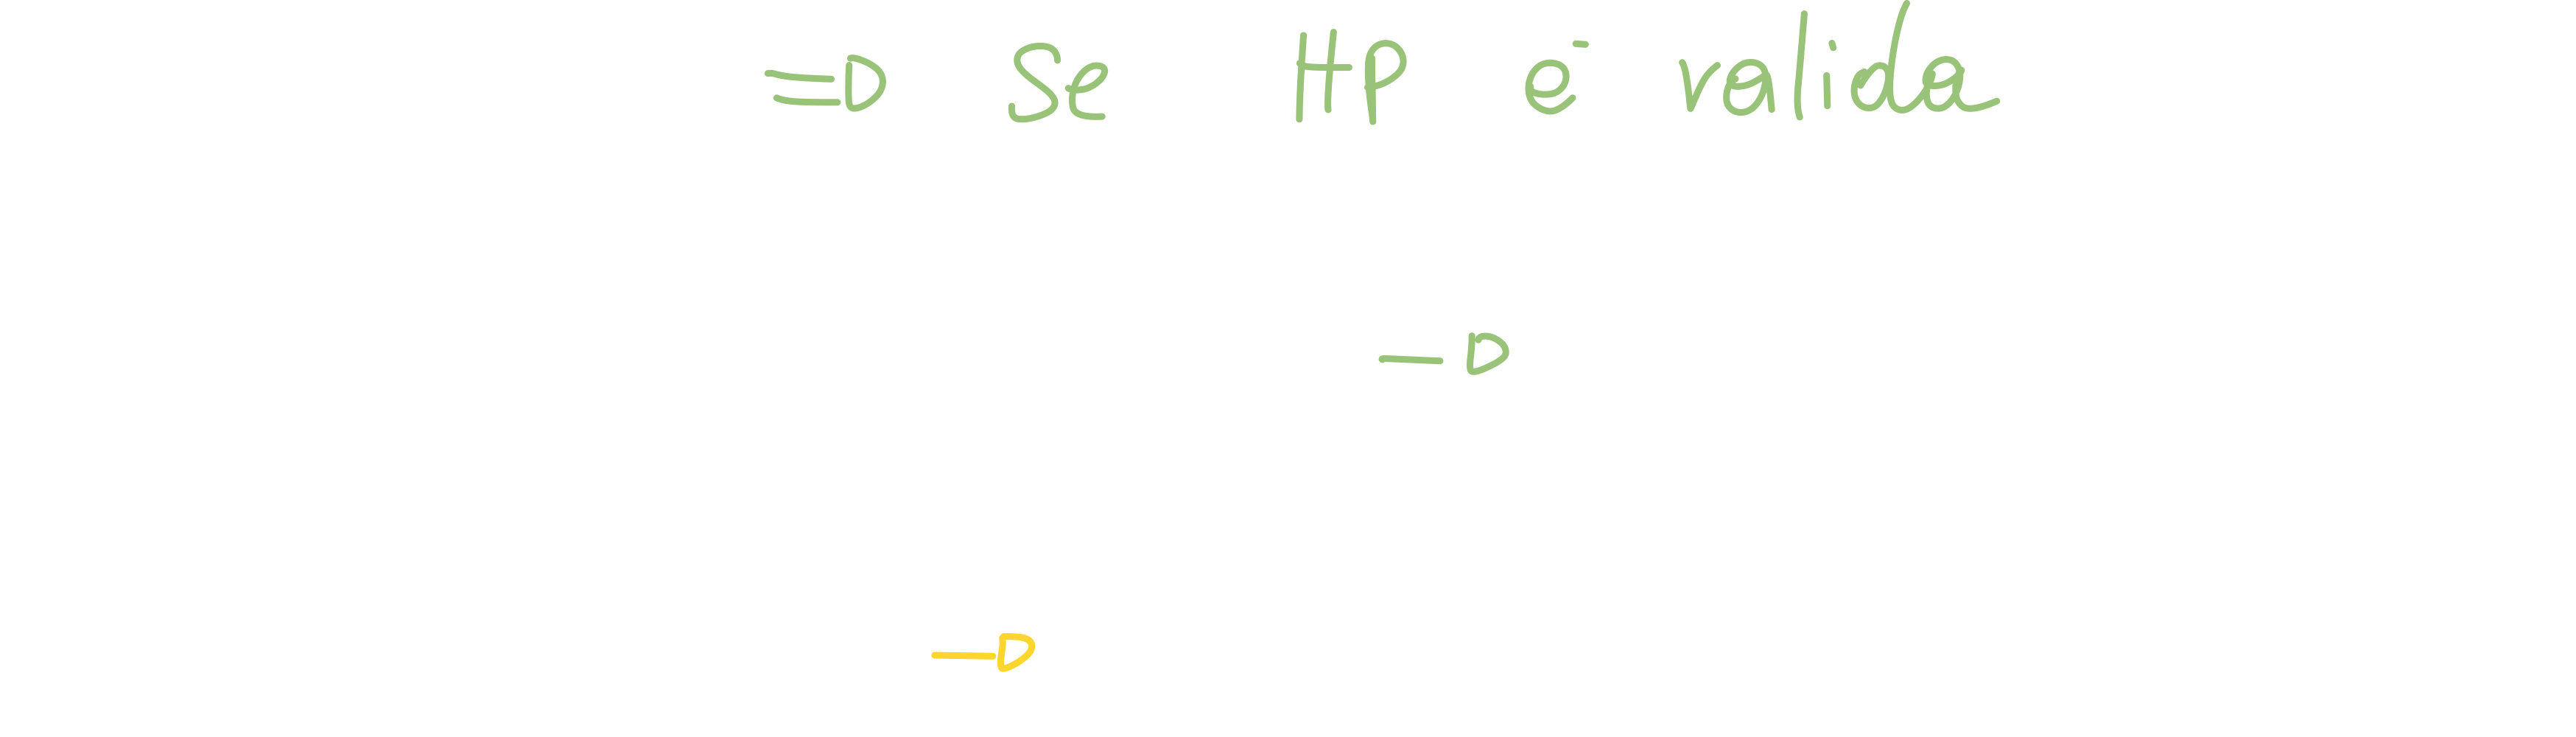 ⇒ Se HP è valida
→
→